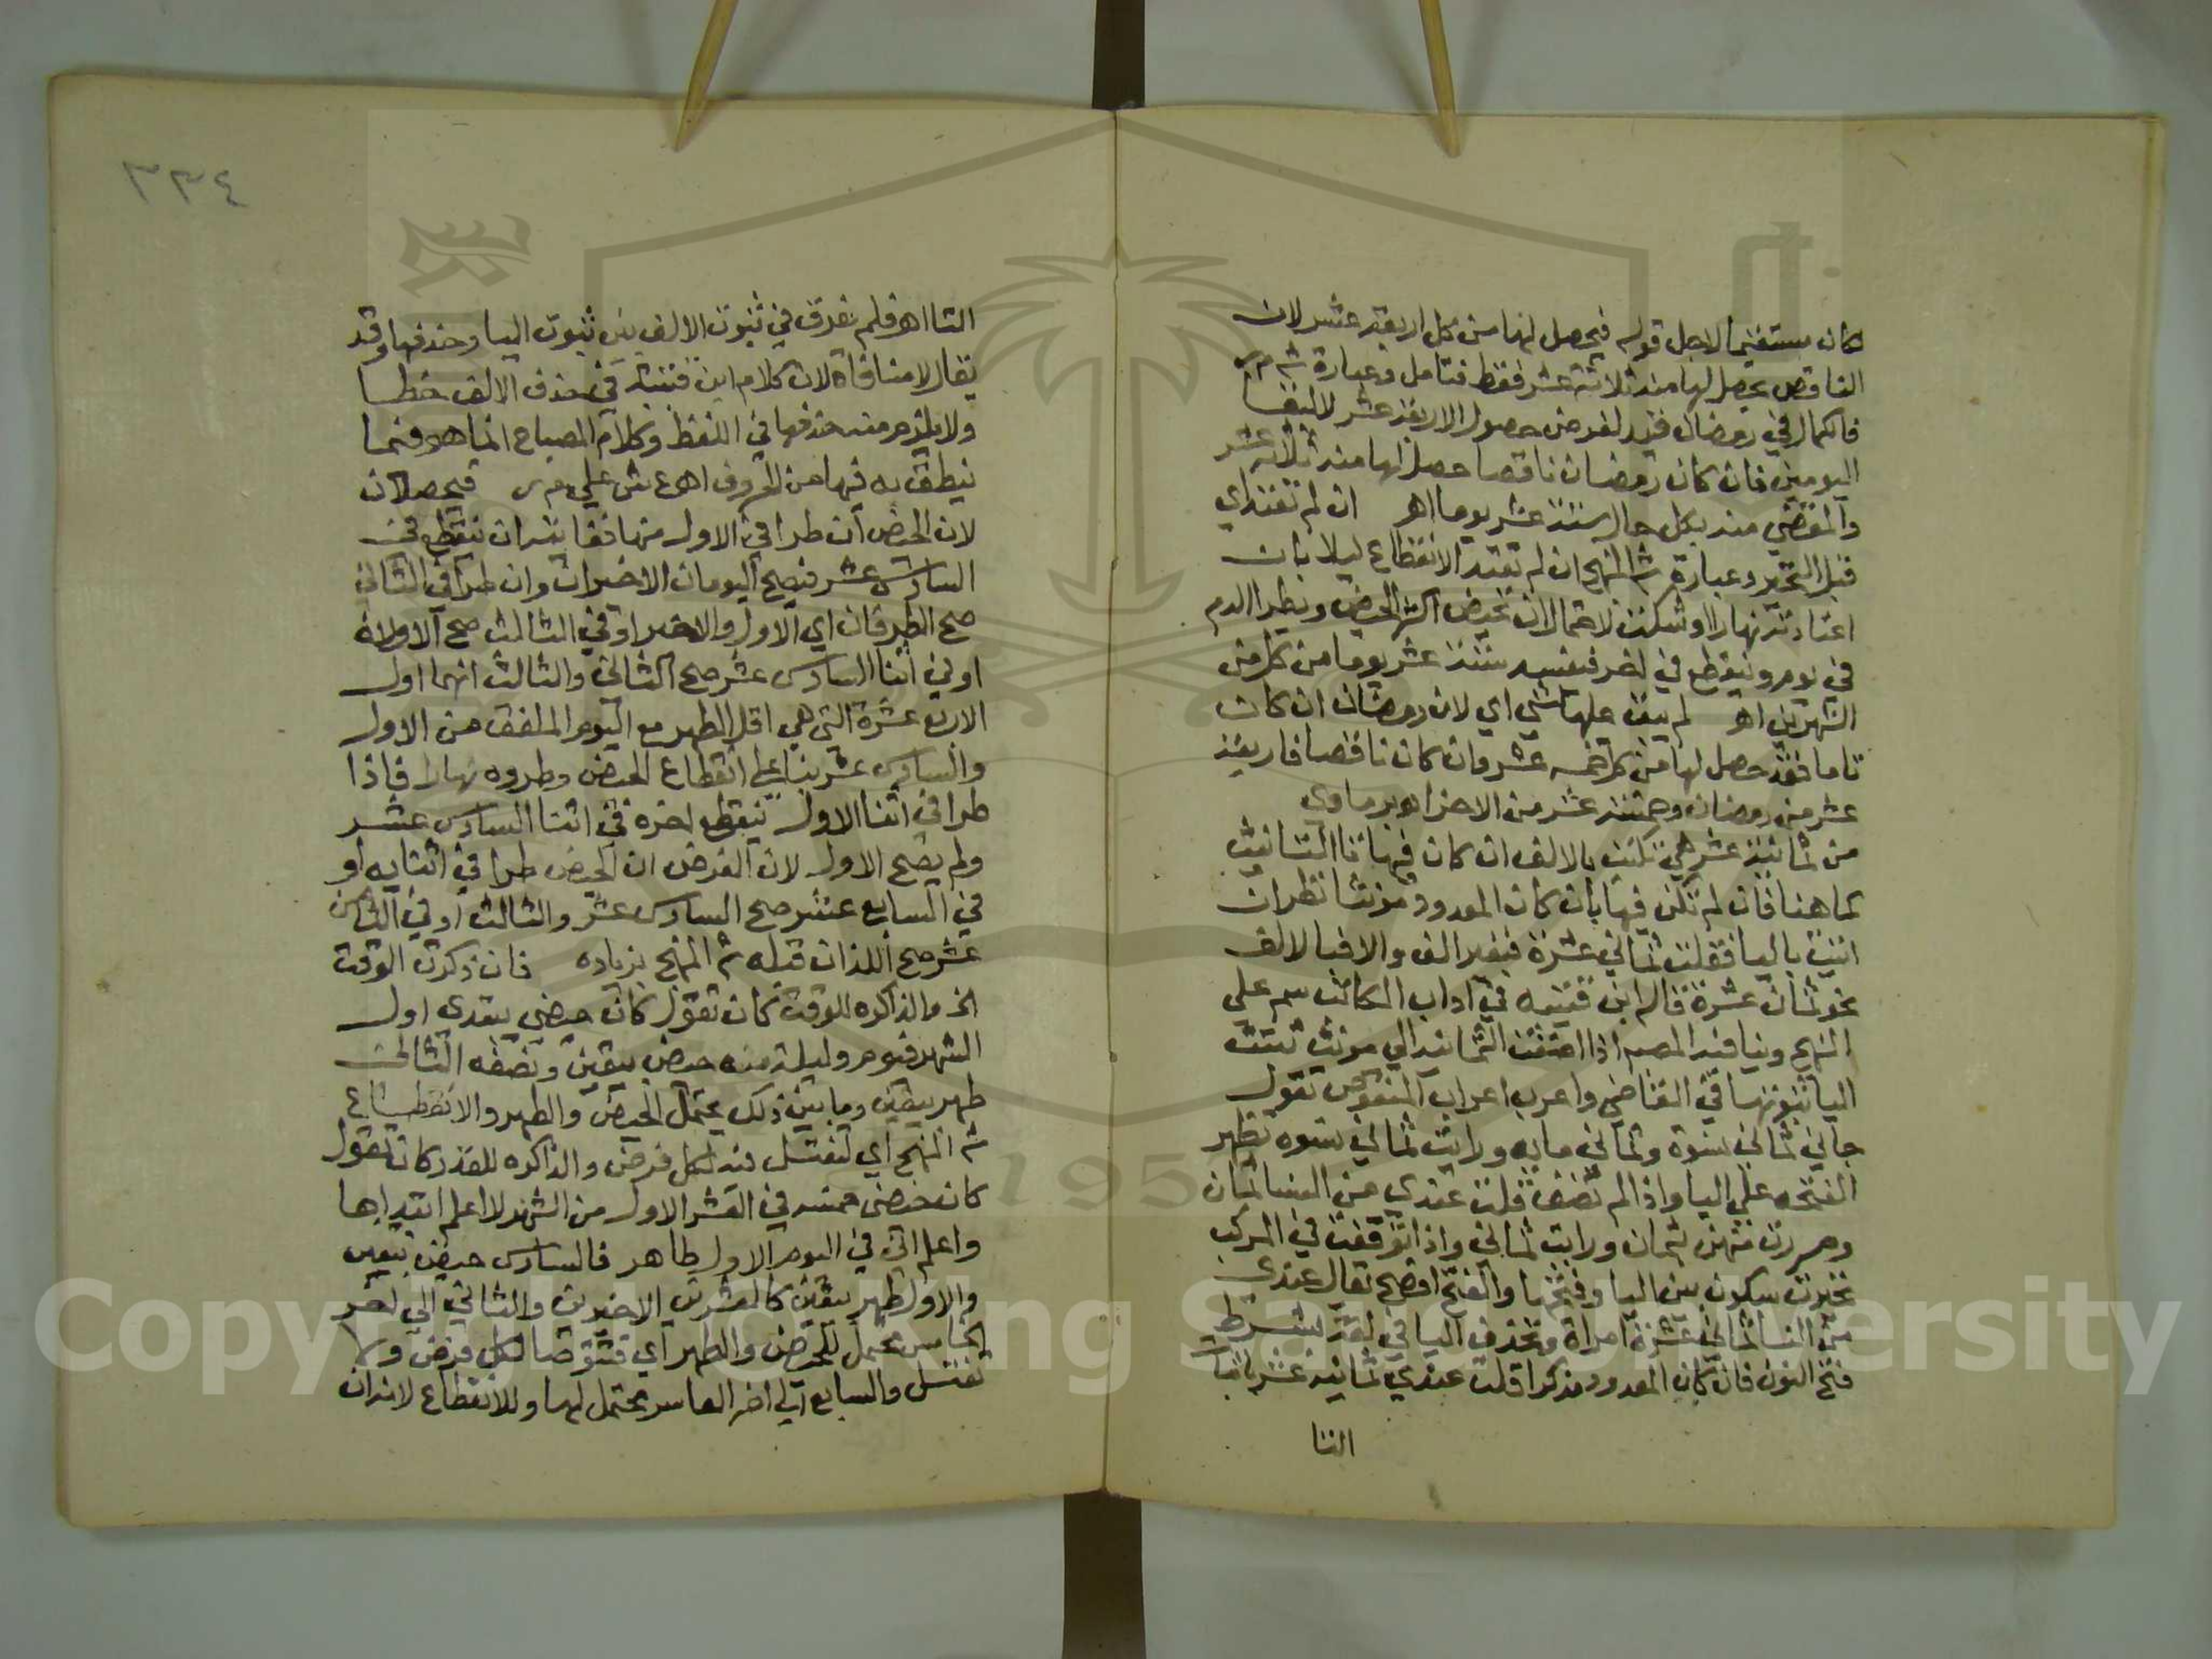 كان مستغنيا لاجل قوله فيحصل لها من كل اربعة عشر لان
الناقص يحصل لها منه ثلاثة عشر فقط فتامل وعبارة ش م ر
فالكمال في رمضان قيد لغرض حصول الاربعة عشر لا لبقا
اليومين فان كان رمضان ناقصا حصل لها منه ثلاثة عشر
والمقضي منه بكل حال ستة عشر يوما اهـ ان لم تعتد اي
قبل التحير وعبارة ش المنهج ان لم تعتد الانقطاع ليلا بان
اعتادته نهارا او شكت لاحتمال ان تحيض اكثر الحيض ويطرا الدم
في يوم وينقطع في اخر فيفسد ستة عشر يوما من كل من
الشهرين اهـ لم يبق عليها شي اي لان رمضان ان كان
تاما فقد حصل لها من كل خمسه عشر وان كان ناقصا فاربعة
عشر من رمضان وخمسة عشر من الاخر اهـ برماوي
من ثمانية عشر هي تكتب بالالف ان كان فيها تا التانيث
كما هنا فان لم تكن فيها بان كان المعدود مونثا نظر ان
اتيت باليا فقلت ثماني عشرة فبغير الف والا فبالالف
نحو ثمان عشرة قاله ابن قتيبه في اداب الكاتب سم علي
المنهج وينافيه المصباح اذا اضفت الثمانيه الي مونث تثبت
اليا ثبوتها في القاضي واعرب اعراب المنقوص تقول
جاني ثماني نسوة وثماني مايه ورايت ثماني نسوه تظهر
الفتحه علي اليا واذا لم تضف قلت عندي من النسا ثمان
ومررت منهن بثمان ورايت ثماني واذا وقعت في المركب
تخيرت بين سكون اليا وفتحها والفتح افصح يقال عندي
من النسا ثماني عشرة امراة وتحذف اليا في لغة بشرط
فتح النون فان كان المعدود مذكرا قلت عندي ثمانية عشر باثبات
التا
٣٣٤
التا اهـ فلم يفرق في ثبوت الالف بين ثبوت اليا وحذفها وقد
يقال لا منافاة لان كلام ابن قتيبة في حذف الالف خطا
ولا يلزم منه حذفها في اللفظ وكلام المصباح انما هو فيما
ينطق به فيها من الحروف اهـ ع ش علي م ر فيحصلان
لان الحيض ان طرا في الاول منها فغايته ان ينقطع في
السادس عشر فيصح اليومان الاخيران وان طرا في الثاني
صح الطرفان اي الاول والاخير او في الثالث صح الاولان
او في اثنا السادس عشر صح الثاني والثالث انهما اول
الاربع عشرة التي هي اقل الطهر مع اليوم الملفق من الاول
والسادس عشر بنا علي انقطاع الحيض وطروه نهارا فاذا
طرا في اثنا الاول ينقطع اخره في اثنا السادس عشر
ولم يصح الاول لان الفرض ان الحيض طرا في اثنايه او
في السابع عشر صح السادس عشر والثالث او في الثامن
عشر صح اللذان قبله ش المنهج بزياده فان ذكرت الوقت
الخ والذاكره للوقت كان تقول كان حيضي يبتدي اول
الشهر فيوم وليلة منه حيض بيقين ونصفه الثاني
طهر بيقين وما بين ذلك يحتمل الحيض والطهر والانقطاع
ش المنهج اي تغتسل منه لكل فرض والذاكره للقدر كان تقول
كان حيضي خمسه في العشر الاول من الشهر لا اعلم ابتداها
واعلم اني في اليوم الاول طاهر فالسادس حيض بيقين
والاول طهر بيقين كالعشرين الاخيرين والثاني الي اخر
الخامس يحتمل الحيض والطهر اي فتتوضا لكل فرض ولا
تغتسل والسابع الي اخر العاشر يحتمل لهما وللانقطاع لانه ان
Copyright © King Saud University